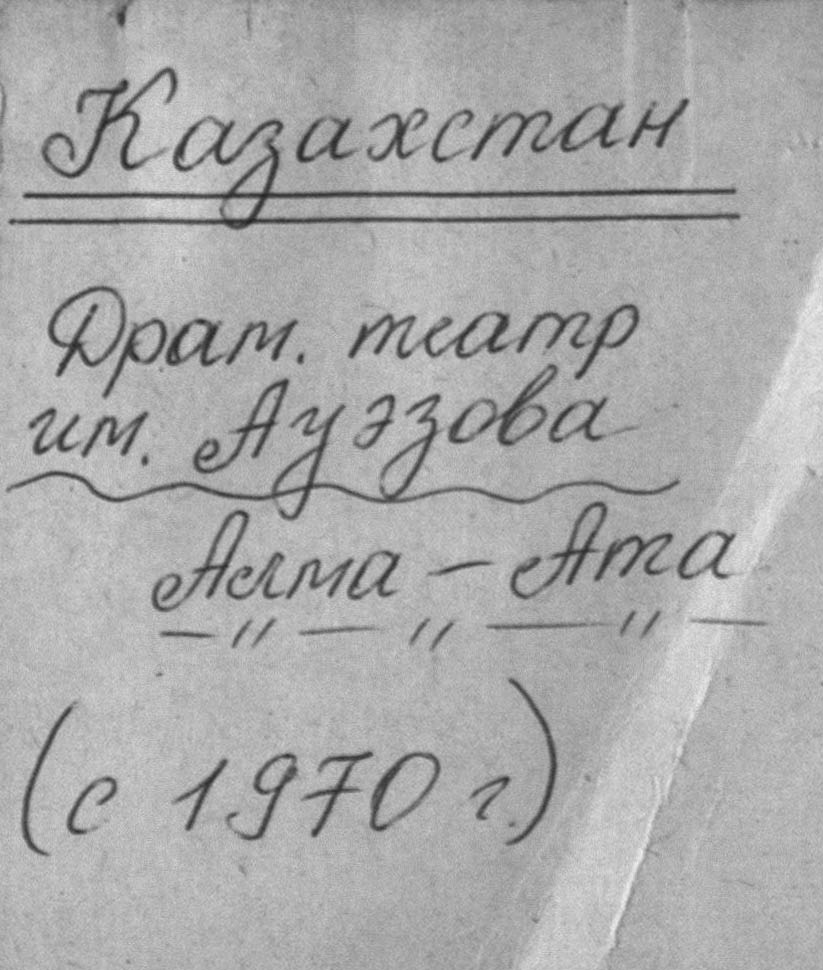 Казахстан
Драм. театр
им. Ауэзова
Алма – Ата
— " — " — " —
(с 1970 г.)